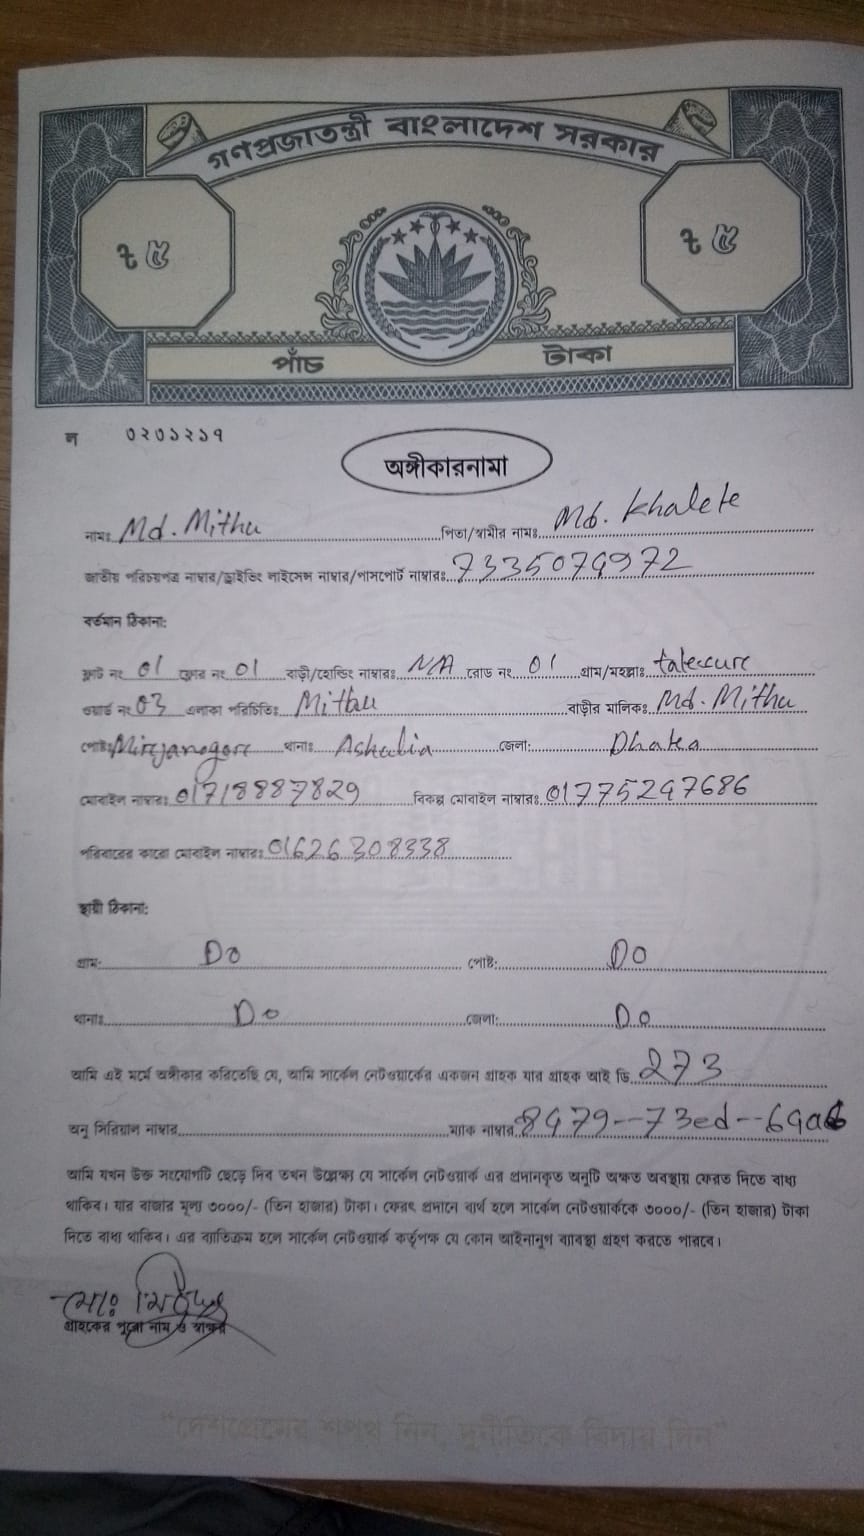 গণপ্রজাতন্ত্রী বাংলাদেশ সরকার
৳ ৫ ৳ ৫
পাঁচ টাকা
ল ০২০১২১৭
অঙ্গীকারনামা
নামঃ Md. Mithu পিতা/স্বামীর নামঃ Md. Khalete
জাতীয় পরিচয়পত্র নাম্বার/ড্রাইভিং লাইসেন্স নাম্বার/পাসপোর্ট নাম্বারঃ 7335079972
বর্তমান ঠিকানা:
ফ্লাট নং 01 ফ্লোর নং 01 বাড়ী/হোল্ডিং নাম্বারঃ N/A রোড নং 01 গ্রাম/মহল্লাঃ
ওয়ার্ড নং 03 এলাকা পরিচিতিঃ Mithu বাড়ীর মালিকঃ Md. Mithu
পোষ্টঃ Mirzanogore থানাঃ Ashulia জেলা: Dhaka
মোবাইল নাম্বারঃ 01718887829 বিকল্প মোবাইল নাম্বারঃ 01775297686
পরিবারের কারো মোবাইল নাম্বারঃ 01626308338
স্থায়ী ঠিকানা:
গ্রাম: Do পোষ্ট: Do
থানাঃ Do জেলা: Do
আমি এই মর্মে অঙ্গীকার করিতেছি যে, আমি সার্কেল নেটওয়ার্কের একজন গ্রাহক যার গ্রাহক আই ডি 273
অনু সিরিয়াল নাম্বার ম্যাক নাম্বার 8479--73ed--69a6
আমি যখন উক্ত সংযোগটি ছেড়ে দিব তখন উল্লেক্ষ্য যে সার্কেল নেটওয়ার্ক এর প্রদানকৃত অনুটি অক্ষত অবস্থায় ফেরত দিতে বাধ্য
থাকিব। যার বাজার মূল্য ৩০০০/- (তিন হাজার) টাকা। ফেরৎ প্রদানে ব্যর্থ হলে সার্কেল নেটওয়ার্ককে ৩০০০/- (তিন হাজার) টাকা
দিতে বাধ্য থাকিব। এর ব্যতিক্রম হলে সার্কেল নেটওয়ার্ক কর্তৃপক্ষ যে কোন আইনানুগ ব্যাবস্থা গ্রহণ করতে পারবে।
মোঃ মিঠু
গ্রাহকের পুরো নাম ও স্বাক্ষর
“দেশপ্রেমের শপথ নিন, দুর্নীতিকে বিদায় দিন”